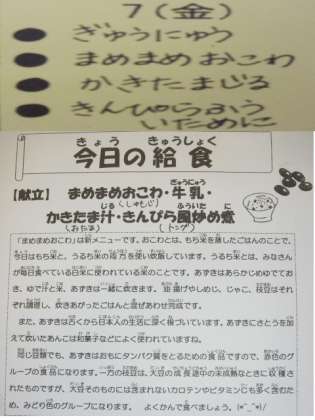 7(金)
● ぎゅうにゅう
● まめまめおこわ
● かきたまじる
● きんぴらふう
いために
きょう きゅうしょく
今日の給食
ぎゅうにゅう
【献立】 まめまめおこわ・牛乳・
じる (しゃもじ) ふういた に
かきたま汁・きんぴら風炒め煮
(おたま) (トング)
「まめまめおこわ」は新メニューです。おこわとは、もち米を蒸したごはんのことで、
今日はもち米と、うるち米の両方を使い炊飯しています。うるち米とは、みなさん
が毎日食べている白米に使われている米のことです。あずきはあらかじめゆでてお
き、ゆで汁と米、あずきは一緒に炊きます。油揚げやしめじ、じゃこ、枝豆はそれ
ぞれ調理し、炊きあがったごはんと混ぜあわせ完成です。
また、あずきは古くから日本人の生活に深く根づいています。あずきにさとうを加
えて炊いたあんこは和菓子などによく使われていますね。
同じ豆類でも、あずきはおもにタンパク質をとるための食品ですので、赤色のグ
ループの食品になります。一方の枝豆は、大豆の成長途中の未成熟なときに収穫さ
れたものですが、大豆そのものには含まれないカロテンやビタミンCも多く含むた
め、みどり色のグループになります。 よくかんで食べましょう。